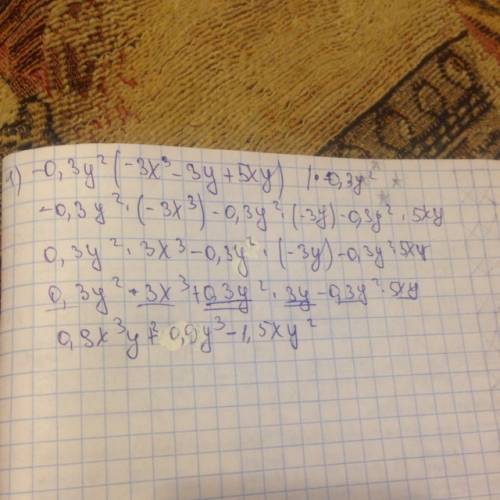 1) -0,3y²(-3x³-3y+5xy) |·-0,3y²
-0,3y²·(-3x³)-0,3y²·(-3y)-0,3y²·5xy
0,3y²·3x³-0,3y²·(-3y)-0,3y²5xy
0,3y²·3x³+0,3y²·3y-0,3y²·5xy
0,9x³y²+0,9y³-1,5xy²